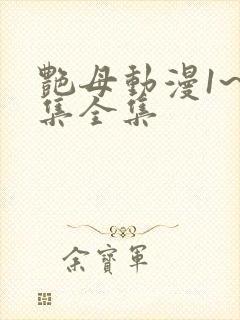 艷母動漫1~
集全集
余寶軍